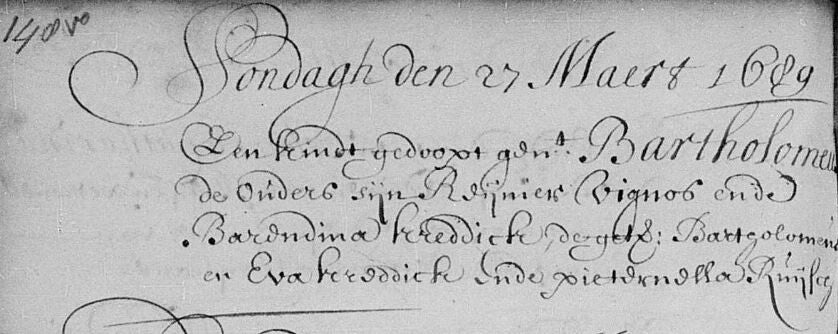 148vo
Sondagh den 27 Maert 1689
Een kindt gedoopt gent: Bartholomeus
de Ouders sijn Reijnier Vignos ende
Barendina kreddick, de get: Bartholomeus
en Eva kreddick ende pieternella Ruijsch